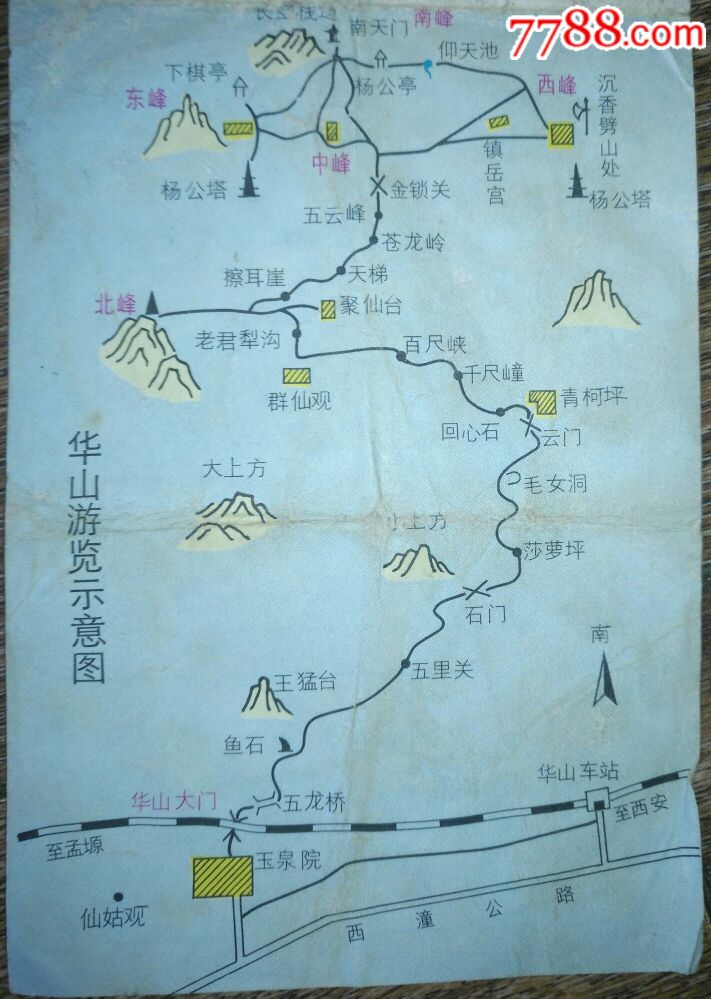 7788.com
长空栈道
南天门
南峰
仰天池
下棋亭
杨公亭
西峰
沉香劈山处
东峰
中峰
镇岳宫
杨公塔
金锁关
杨公塔
五云峰
苍龙岭
天梯
擦耳崖
北峰
聚仙台
老君犁沟
百尺峡
千尺㠉
群仙观
青柯坪
回心石
云门
华山游览示意图
大上方
毛女洞
小上方
莎萝坪
石门
南
五里关
王猛台
鱼石
华山车站
华山大门
五龙桥
至西安
至孟塬
玉泉院
仙姑观
西潼公路